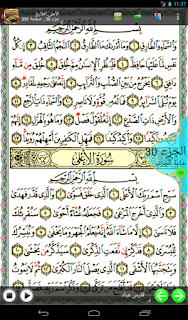 11:37
الأعلى,الطارق
جزء 30, صفحة 591
بِسْمِ اللَّهِ الرَّحْمَٰنِ الرَّحِيمِ
وَالسَّمَاءِ وَالطَّارِقِ ١ وَمَا أَدْرَاكَ مَا الطَّارِقُ ٢ النَّجْمُ الثَّاقِبُ ٣ إِن كُلُّ
نَفْسٍ لَّمَّا عَلَيْهَا حَافِظٌ ٤ فَلْيَنظُرِ الْإِنسَانُ مِمَّ خُلِقَ ٥ خُلِقَ مِن مَّاءٍ دَافِقٍ ٦
يَخْرُجُ مِن بَيْنِ الصُّلْبِ وَالتَّرَائِبِ ٧ إِنَّهُ عَلَىٰ رَجْعِهِ لَقَادِرٌ ٨ يَوْمَ تُبْلَى السَّرَائِرُ
٩ فَمَا لَهُ مِن قُوَّةٍ وَلَا نَاصِرٍ ١٠ وَالسَّمَاءِ ذَاتِ الرَّجْعِ ١١ وَالْأَرْضِ ذَاتِ
الصَّدْعِ ١٢ إِنَّهُ لَقَوْلٌ فَصْلٌ ١٣ وَمَا هُوَ بِالْهَزْلِ ١٤ إِنَّهُمْ يَكِيدُونَ
كَيْدًا ١٥ وَأَكِيدُ كَيْدًا ١٦ فَمَهِّلِ الْكَافِرِينَ أَمْهِلْهُمْ رُوَيْدًا ١٧
سُورَةُ الْأَعْلَىٰ
بِسْمِ اللَّهِ الرَّحْمَٰنِ الرَّحِيمِ
سَبِّحِ اسْمَ رَبِّكَ الْأَعْلَى ١ الَّذِي خَلَقَ فَسَوَّىٰ ٢ وَالَّذِي قَدَّرَ فَهَدَىٰ
٣ وَالَّذِي أَخْرَجَ الْمَرْعَىٰ ٤ فَجَعَلَهُ غُثَاءً أَحْوَىٰ ٥ سَنُقْرِئُكَ
فَلَا تَنسَىٰ ٦ إِلَّا مَا شَاءَ اللَّهُ إِنَّهُ يَعْلَمُ الْجَهْرَ وَمَا يَخْفَىٰ ٧ وَنُيَسِّرُكَ
لِلْيُسْرَىٰ ٨ فَذَكِّرْ إِن نَّفَعَتِ الذِّكْرَىٰ ٩ سَيَذَّكَّرُ مَن يَخْشَىٰ ١٠
وَيَتَجَنَّبُهَا الْأَشْقَى ١١ الَّذِي يَصْلَى النَّارَ الْكُبْرَىٰ ١٢ ثُمَّ لَا يَمُوتُ
الجزء 30
فارس عباد